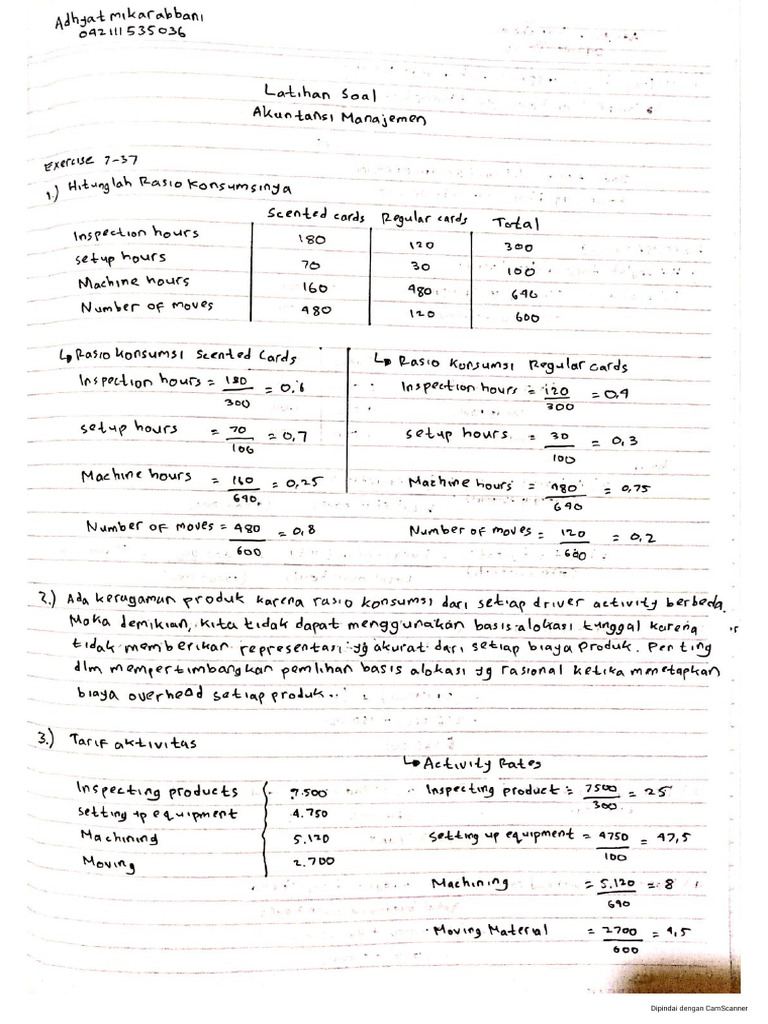 Adhyatmikarabbani
042111535036
Latihan Soal
Akuntansi Manajemen
Exercise 7-37
1.) Hitunglah Rasio Konsumsinya
Scented cards Regular cards Total
Inspection hours 180 120 300
setup hours 70 30 100
Machine hours 160 480 640
Number of moves 480 120 600
↳ Rasio Konsumsi Scented Cards
Inspection hours = 180/300 = 0,6
setup hours = 70/100 = 0,7
Machine hours = 160/640 = 0,25
Number of moves = 480/600 = 0,8
↳ Rasio Konsumsi Regular Cards
Inspection hours = 120/300 = 0,4
setup hours = 30/100 = 0,3
Machine hours = 480/640 = 0,75
Number of moves = 120/600 = 0,2
2.) Ada keragaman produk karena rasio konsumsi dari setiap driver activity berbeda.
Maka demikian, kita tidak dapat menggunakan basis alokasi tunggal karena
tidak memberikan representasi yg akurat dari setiap biaya produk. Penting
dlm mempertimbangkan pemilihan basis alokasi yg rasional ketika menetapkan
biaya overhead setiap produk..
3.) Tarif aktivitas
Inspecting products 7.500
setting up equipment 4.750
Machining 5.120
Moving 2.700
↳ Activity Rates
Inspecting product = 7500/300 = 25
Setting up equipment = 4750/100 = 47,5
Machining = 5.120/640 = 8
Moving Material = 2700/600 = 4,5
Dipindai dengan CamScanner